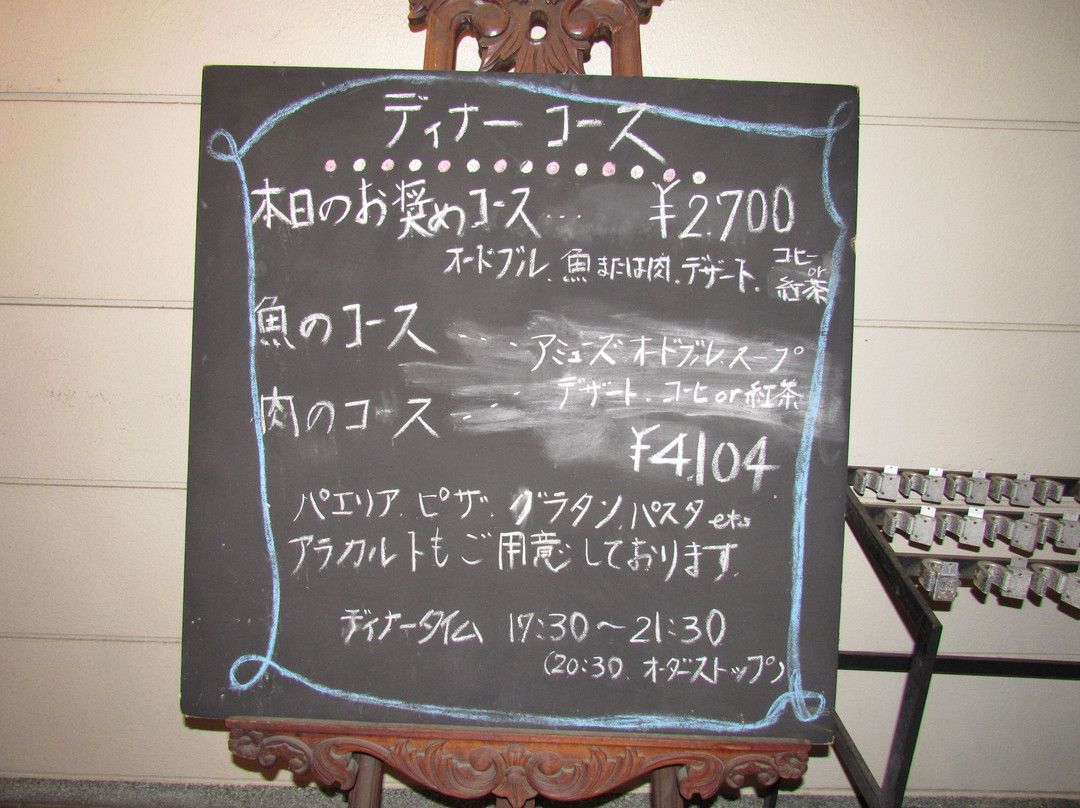 ディナー コース
本日のお奨めコース... ¥2,700
オードブル、魚または肉、デザート、コーヒー or 紅茶
魚のコース .... アミューズ オードブル、スープ
肉のコース ..... デザート、コーヒ or 紅茶
¥4,104
パエリア、ピザ、グラタン、パスタ etc
アラカルトもご用意しております。
ディナータイム 17:30〜21:30
(20:30 オーダーストップ)